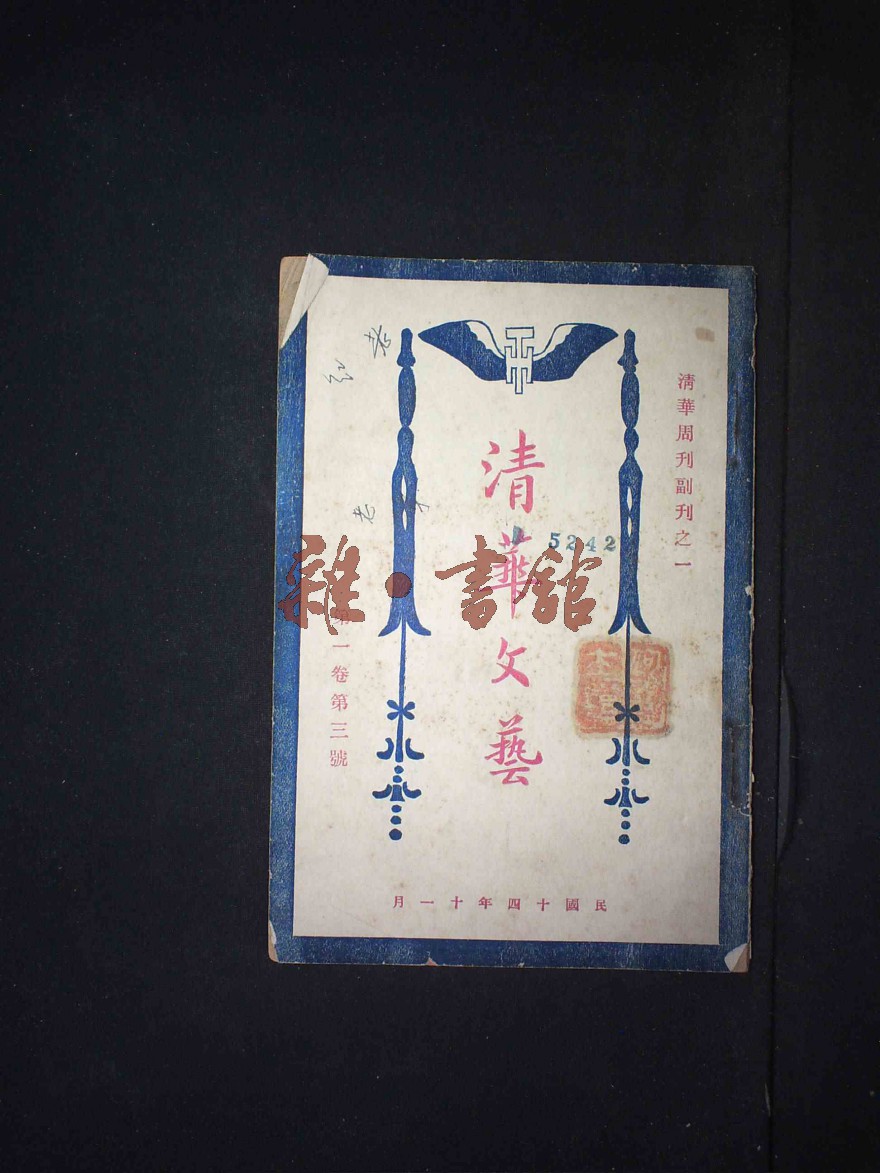 清華周刊副刊之一
清華文藝
5242
第一卷第三號
民國十四年十一月
雜·書舘